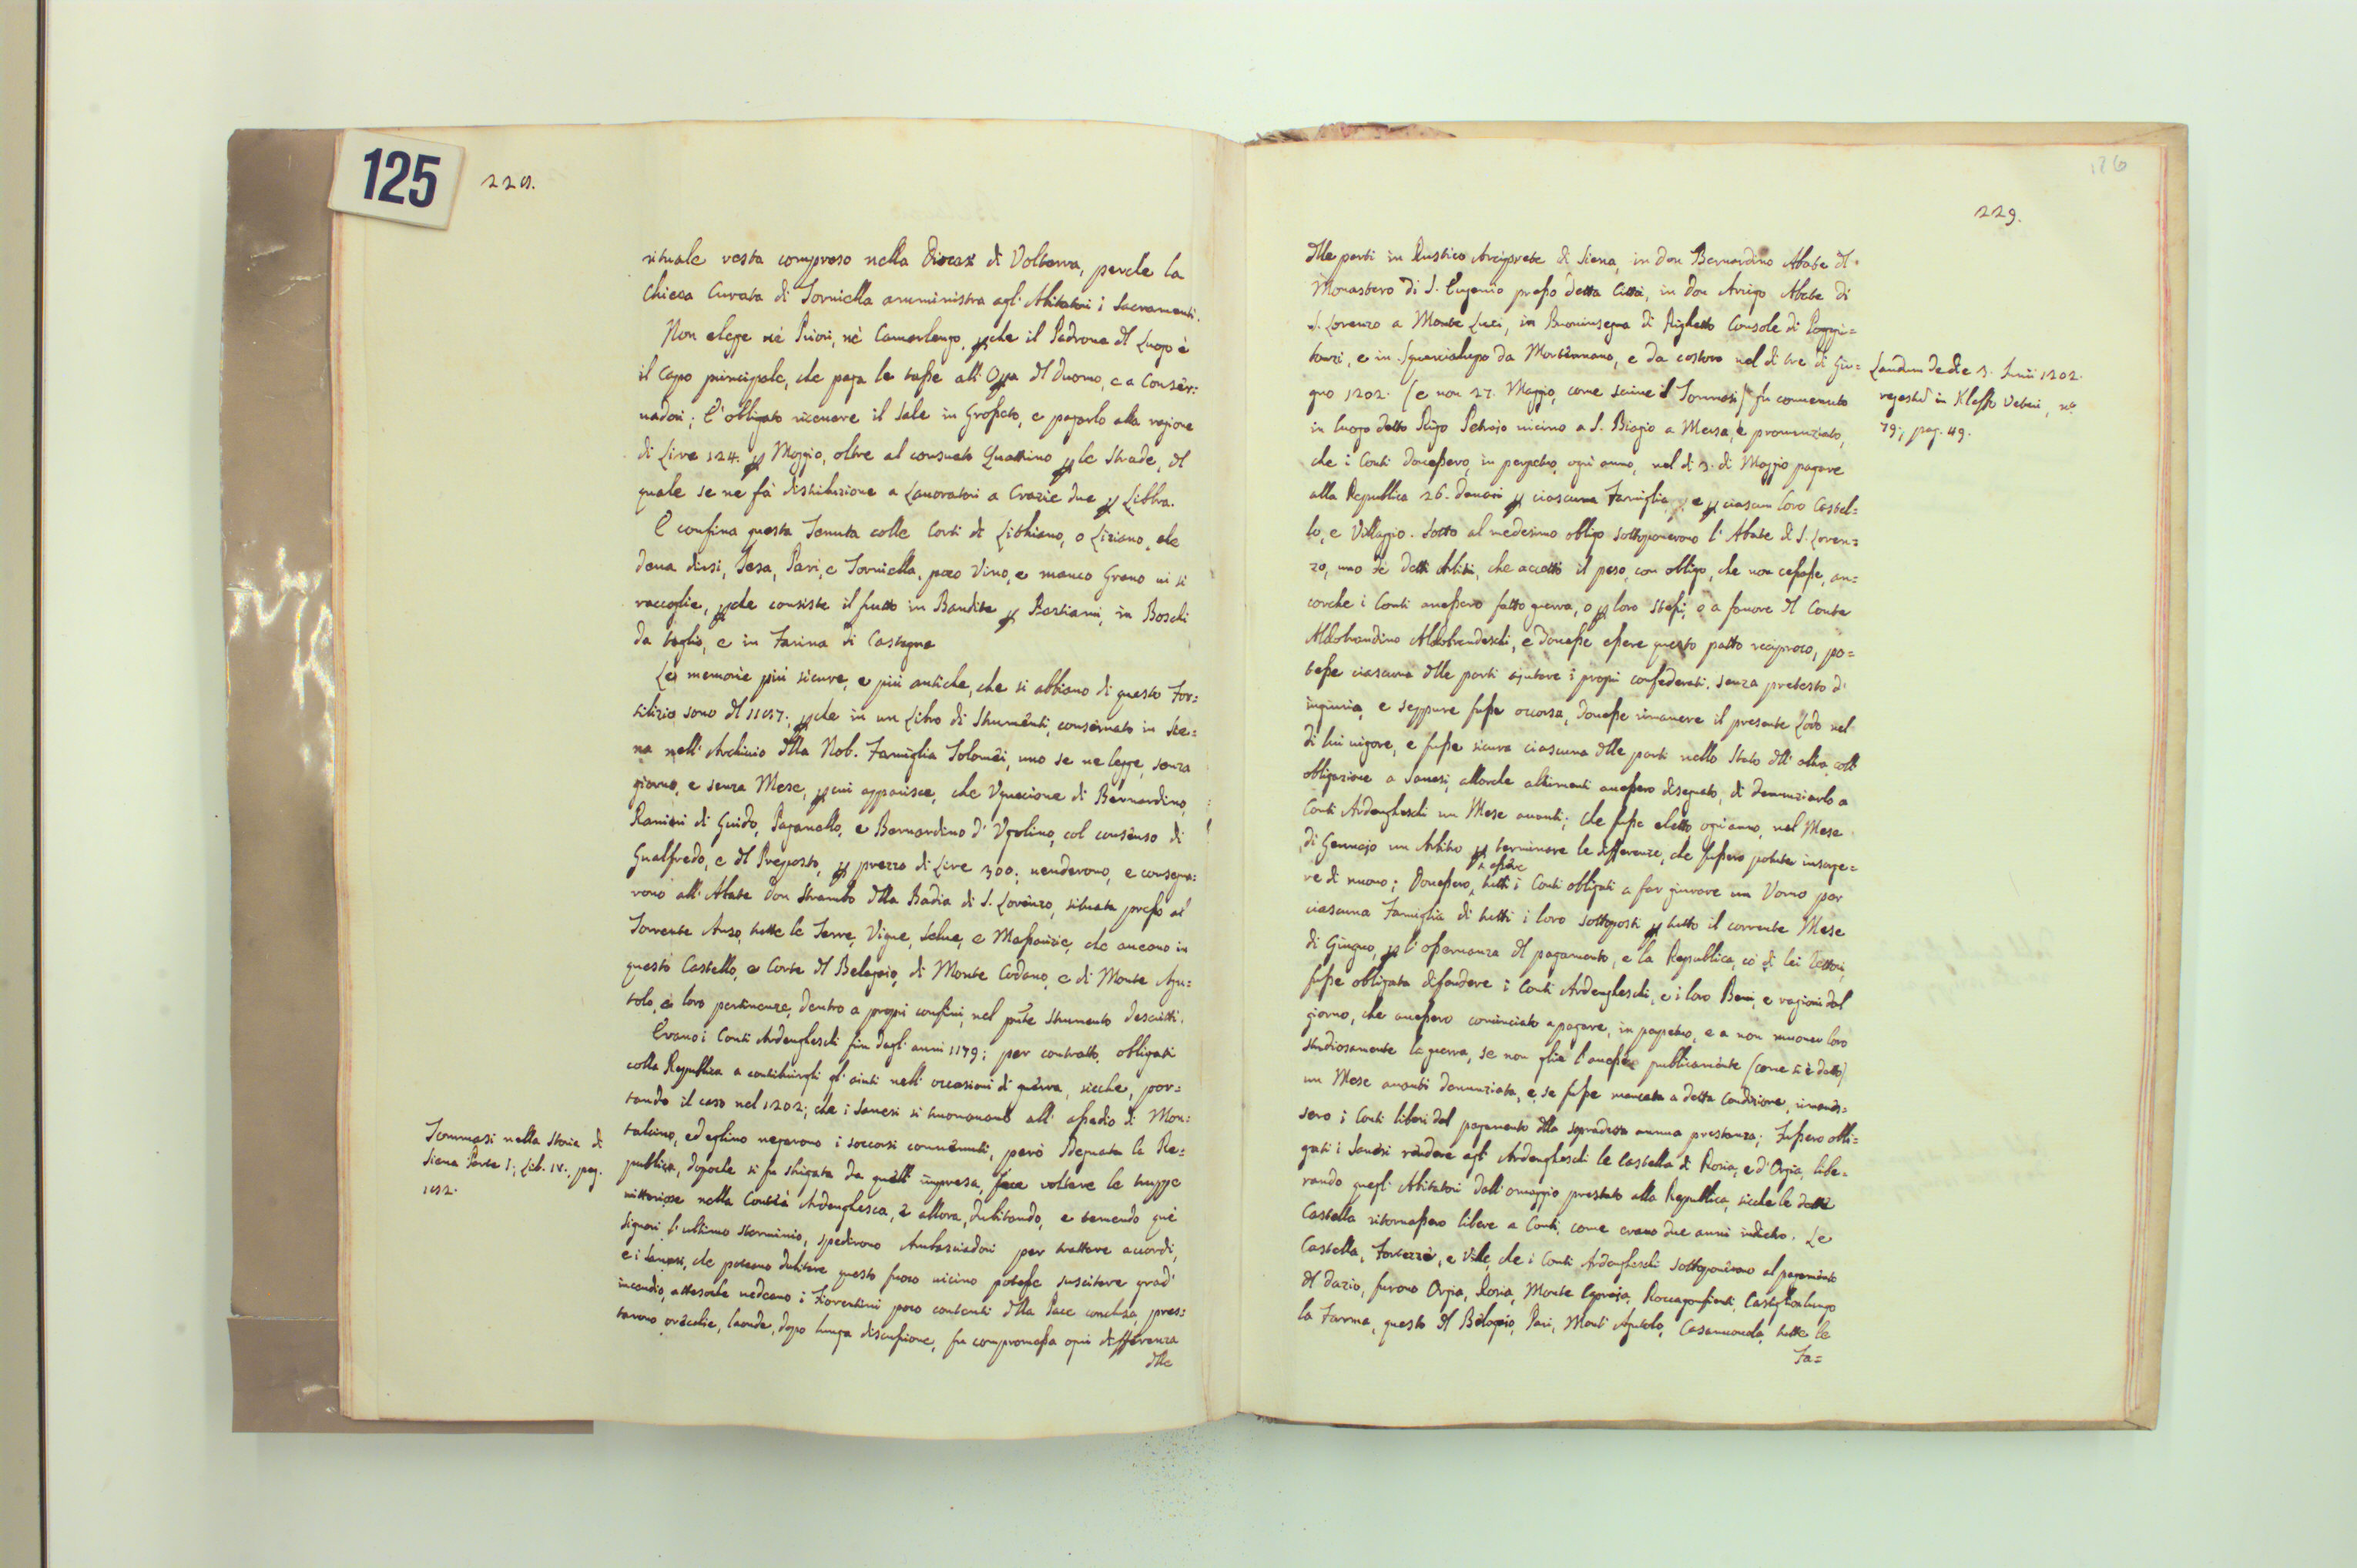 125
228.
rituale resta compreso nella Diocesi di Volterra, perche la
Chiesa Curata di Torniella amministra agl' Abitatori i Sacramenti.
Non elegge nè Priori, nè Camarlengo, pche il Padrone dl Luogo è
il Capo principale, che paga le tasse all' Opa dl Duomo, e a Conser:
uadori; E' obbligato riceuere il Sale in Grosseto, e pagarlo alla ragione
di Lire 124. p Moggio, oltre al consueto Quattrino p le Strade, dl
quale se ne fà distribuzione a Lauoratori a Crazie due p Libbra.
E confina questa Tenuta colle Corti di Lithiano, o Liziano, che
deua dirsi, Iesa, Pari, e Torniella, poco Vino, e manco Grano ui si
raccoglie, pche consiste il frutto in Bandite p Bestiami, in Boschi
da taglio, e in Farina di Castagne
Le memorie più sicure, e più antiche, che si abbiano di questo For:
tilizio sono dl 1157. pche in un Libro di Strumenti, conseruato in Sie:
na nell' Archiuio dlla Nob. Famiglia Tolomei, uno se ne legge, senza
giorno, e senza Mese, p cui apparisce, che Vguccione di Bernardino,
Ranieri di Guido, Paganello, e Bernardino d' Vgolino, col consenso di
Gualfredo, e dl Preposto, p prezzo di Lire 300; uenderono, e consegna:
rono all' Abate Don Strambo dlla Badia di S. Lorenzo, situata presso al
Torrente Anso, tutte le Terre, Vigne, Selue, e Masserizie, che aueano in
questo Castello, e Corte dl Belagaio, di Monte Codano, e di Monte Agu:
tolo, e loro pertinenze, dentro a propri confini, nel pnte Strumento descritti.
Erano i Conti Ardengheschi fin dagl' anni 1179; per contratto, obligati
colla Republica a contribuirgli gl' aiuti nell' occasioni di guerra, sicche, por:
tando il caso nel 1202; che i Sanesi si trouauano all' assedio di Mon:
talcino, ed eglino negarono i soccorsi conuenuti, però sdegnata la Re:
publica, dopoche si fu strigata da quell' impresa, fece voltare le truppe
uittoriose nella Contea Ardenghesca, e allora, dubitando, e temendo que'
Signori l' ultimo sterminio, spedirono Ambasciadori per trattare accordi,
e i Sanesi, che poteano dubitare questo fuoco uicino potesse suscitare grad'
incendio, attesoche uedeano i Fiorentini poco contenti dlla Pace conclusa, pres:
tarono orecchie, laonde, dopo lunga discussione, fu compromessa ogni differenza
dlle
Tommasi nella Storia di
Siena Parte I; Lib. IV., pag.
182.
126
229.
dlle parti in Rustico Arciprete di Siena, in Don Bernardino Abate dl
Monastero di S. Eugenio presso detta Città, in Don Arrigo Abate di
S. Lorenzo a Monte Luci, in Buoninsegna di Righetto Console di Poggi:
bonzi, e in Squarcialupo da Mortennano, e da costoro nel di tre di Giu:
gno 1202. (e non 27. Maggio, come scriue il Tommasi) fu conuenuto
in luogo detto Rigo Petroso uicino a S. Biagio a Mersa, e pronunziato,
che i Conti douessero, in perpetuo, ogni anno, nel di 3. di Maggio pagare
alla Republica 26. Denari p ciascuna Famiglia, e p ciascun loro Castel:
lo, e Villaggio. Sotto al medesimo obligo sottoposero l' Abate di S. Loren:
zo, uno de detti Arbitri, che accettò il peso, con obligo, che non cessasse, an:
corche i Conti auessero fatto guerra, o p loro stessi, o a fauore dl Conte
Aldobrandino Aldobrandeschi, e douesse essere questo patto reciproco, po:
tesse ciascuna dlle parti ajutare i propri confederati, senza pretesto d'
ingiuria, e seppure fusse occorsa, douesse rimanere il presente Lodo nel
di lui uigore, e fusse sicura ciascuna dlle parti nello Stato dll' altra, coll'
obligazione a Sanesi, allorche altrimenti auessero disegnato, di denunziarlo a
Conti Ardengheschi un Mese auanti; che fusse eletto, ogni anno, nel Mese
di Gennajo un Arbitro p terminare le differenze, che fussero potute insorge:
re di nuouo; Douessero essere tutti i Conti obligati a far giurare un Vomo per
ciascuna Famiglia di tutti i loro sottoposti p tutto il corrente Mese
di Giugno, p l' osseruanza dl pagamento, e la Republica, co' di lei Rettori,
fusse obligata difendere i Conti Ardengheschi, e i loro Beni, e ragioni dal
giorno, che auessero cominciato a pagare, in perpetuo, e a non muouer loro
studiosamente la guerra, se non glie l' auesse publicamente (come si è detto)
un Mese auanti denunziata, e, se fusse mancata a detta Condizione, rimanes:
sero i Conti liberi dal pagamento dlla sopradetta annua prestanza; Fussero obli:
gati i Sanesi rendere agli Ardengheschi le Castella di Rosia, e d' Orgia, libe:
rando quegl' Abitatori dall' omaggio prestato alla Republica, sicche le dette
Castella ritornassero libere a Conti, come erano due anni indietro. Le
Castella, Fortezze, e Ville, che i Conti Ardengheschi sottoponeuano al pagamento
dl dazio, furono Orgia, Rosia, Monte Capraja, Roccagonfienti, Castiglionlungo
la Farma, questo dl Belagaio, Pari, Mont' Agutolo, Casanuoula, tutte le
Fa=
Laudum de die 3. Junii 1202.
regestū in Kleffo Veteri, n.º
79; pag. 49.